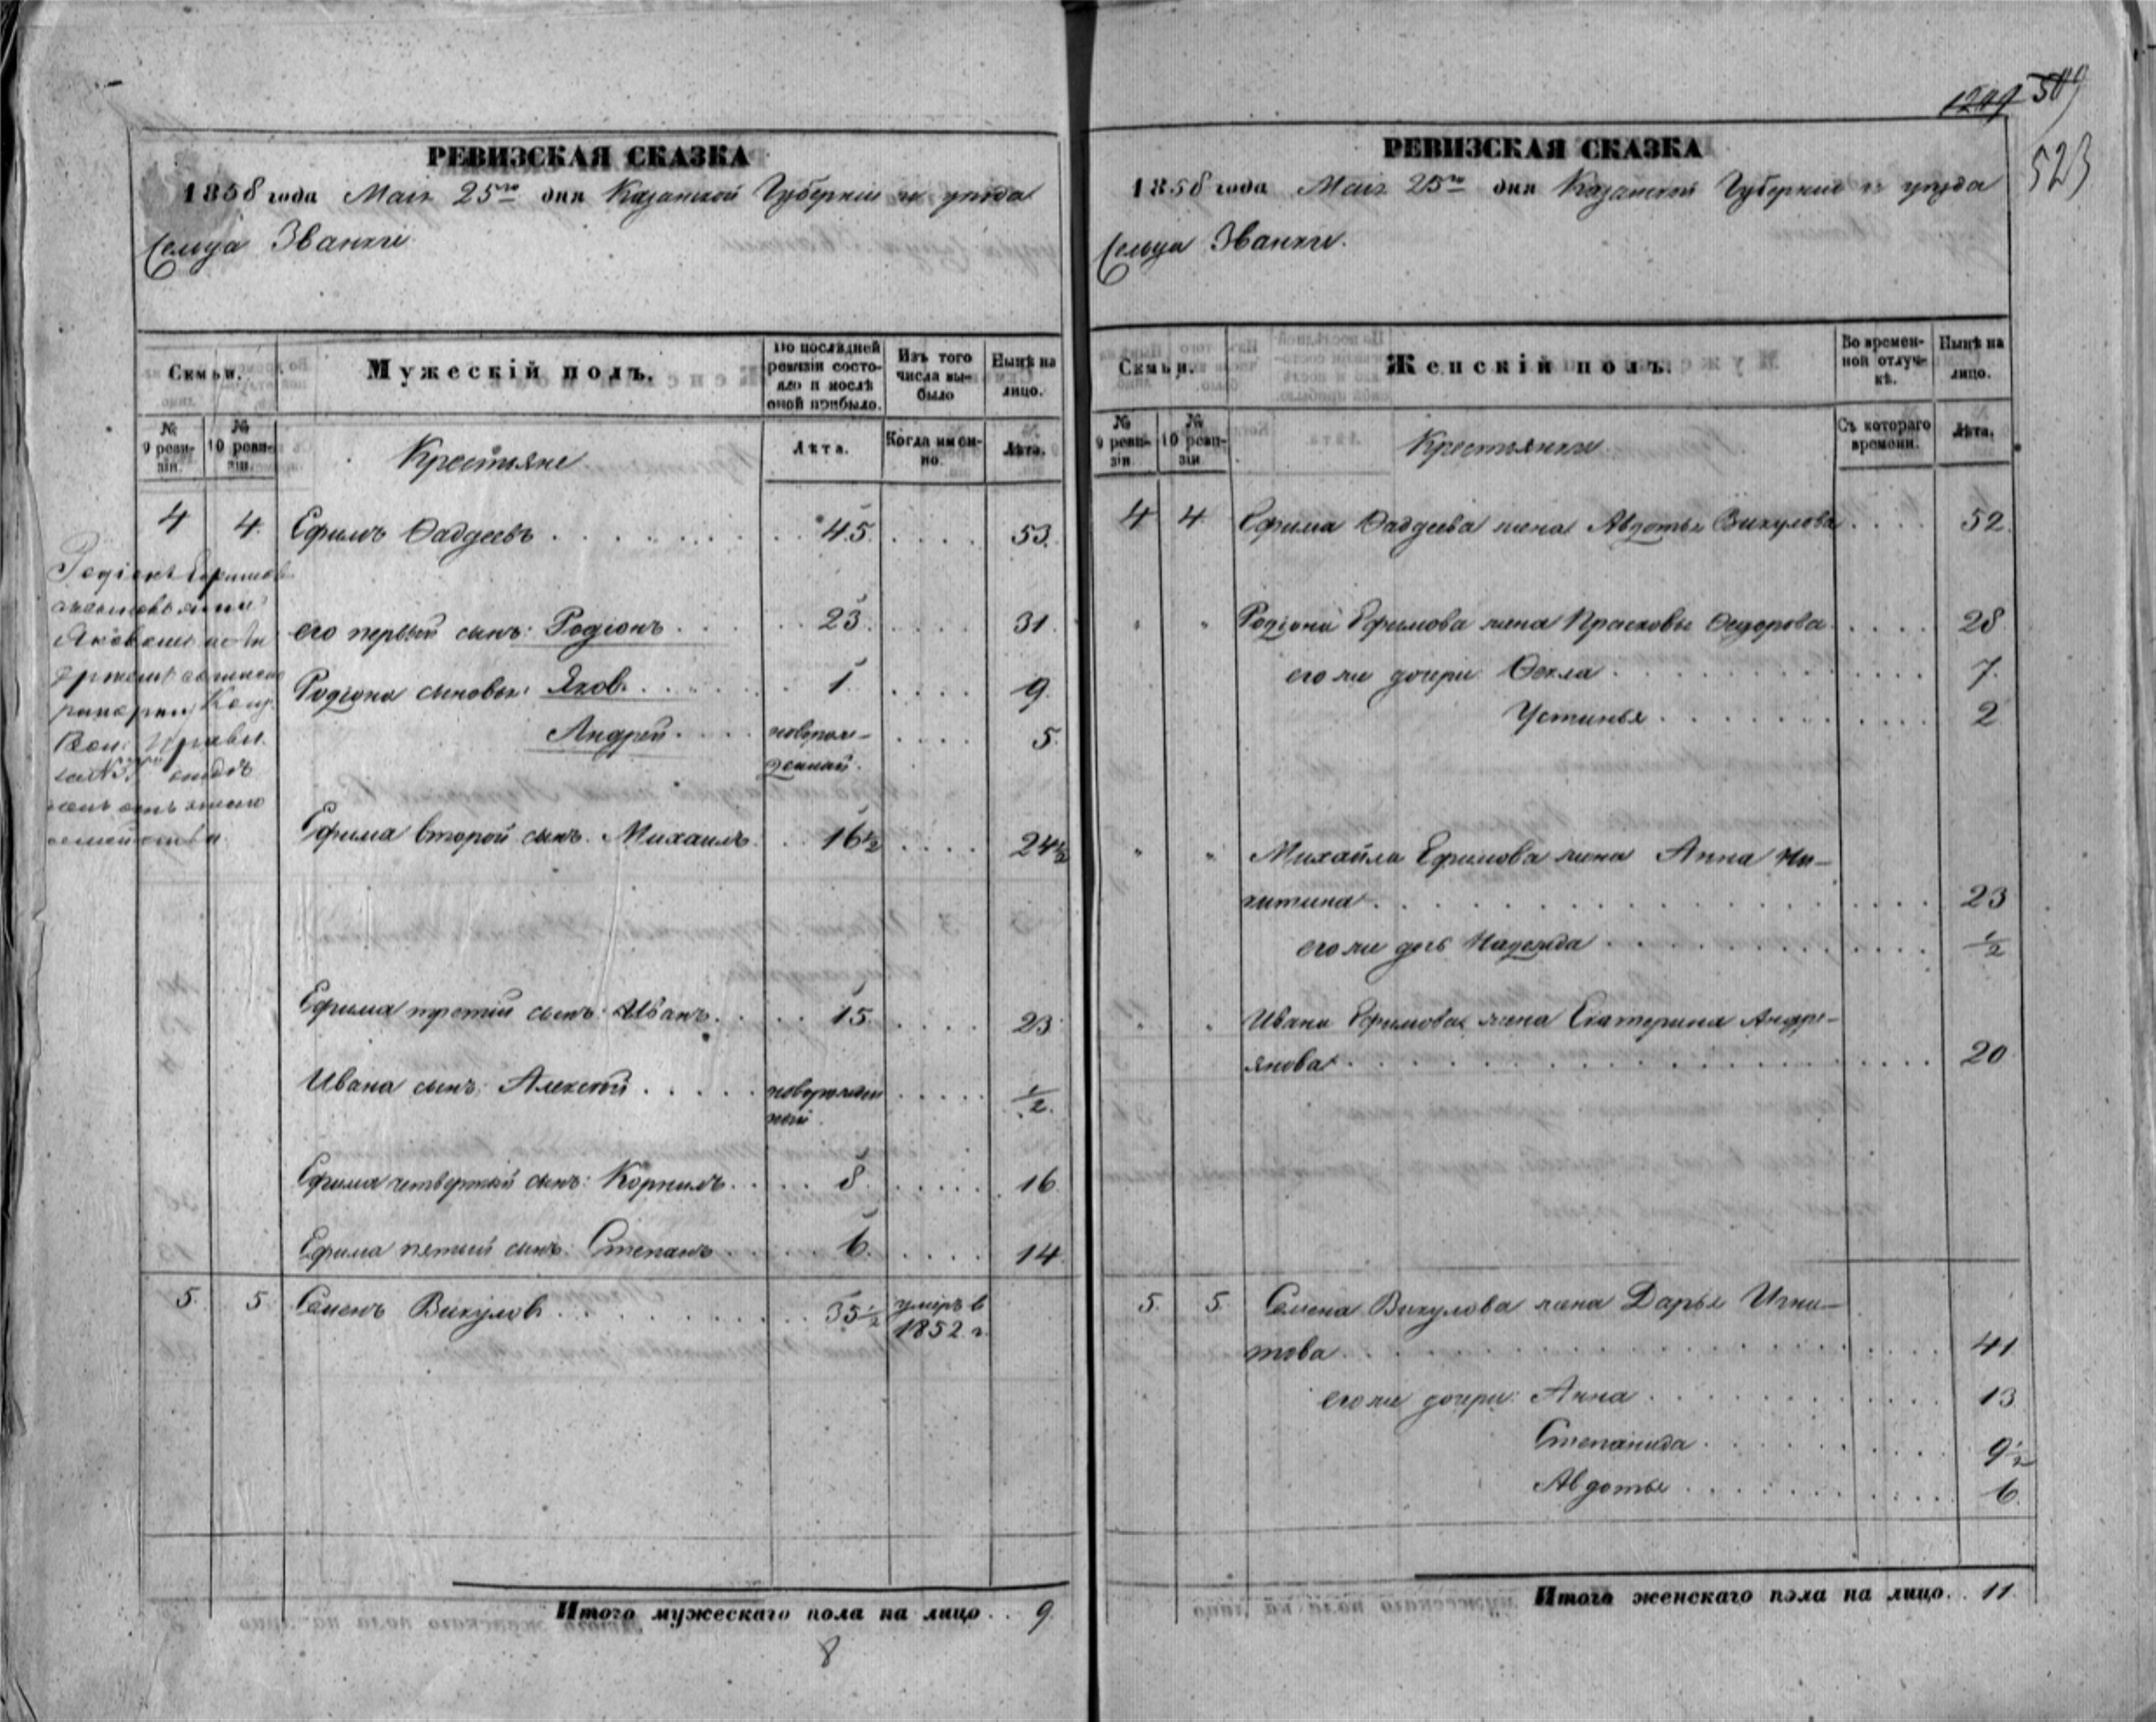 1249 519
523
РЕВИЗСКАЯ СКАЗКА
1858 года Мая 25го дня Казанской Губернии и уѣзда
Сельца Званки
Семьи.
Мужескій полъ.
По послѣдней ревизіи состояло и послѣ оной прибыло.
Изъ того числа выбыло
Нынѣ на лицо.
№ 9 ревизіи.
№ 10 ревизіи.
Крестьяне
Лѣта.
Когда именно.
Лѣта.
4 4 Ефимъ Фаддеевъ 45 53.
Родіонъ Ефимов
его первый сынъ: Родіонъ 23 31
Родіона сыновья: Яковъ 1 9
Андрей новорожденный 5
Ефима второй сынъ Михаилъ 16½ 24½
Ефима третій сынъ: Иванъ 15 23
Ивана сынъ: Алексѣй новорожденный ½
Ефима четвертый сынъ: Корнилъ 8 16
Ефима пятый сынъ: Степанъ 6 14
5 5 Семенъ Викуловъ 35½ умеръ в 1852 г.
Итого мужескаго пола на лицо 9
8
РЕВИЗСКАЯ СКАЗКА
1858 года Мая 25го дня Казанской Губернии и уѣзда
Сельца Званки.
Семьи.
Женскій полъ.
Во временной отлучкѣ.
Нынѣ на лицо.
№ 9 ревизіи
№ 10 ревизіи
Крестьянки
Съ котораго времени.
Лѣта.
4 4 Ефима Фаддеева жена Авдотья Викулова 52
" " Родіона Ефимова жена Прасковья Федорова 28
его же дочери Фекла 7
Устинья 2
" " Михайла Ефимова жена Анна Ни-
китина 23
его же дочь Надежда ½
" " Ивана Ефимова жена Екатерина Андре-
янова 20
5 5 Семена Викулова жена Дарья Игна-
това 41
его же дочери: Анна 13
Степанида 9½
Авдотья 6
Итого женскаго пола на лицо 11